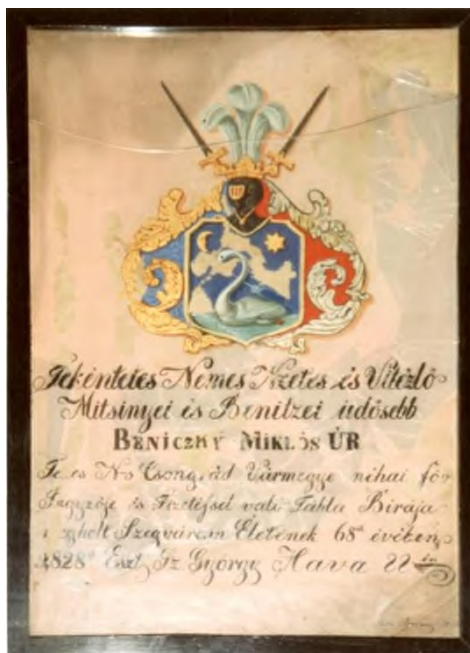 Tekéntetes Nemes Nzetes és Vitézlő
Mitsinyei és Benitzei üdösebb
BENICZKY MIKLÓS ÚR
Tettes Ns Csongrád Vármegye néhai fő
Jegyzője és Tábla Birája
Szegvárom Életének 68dik évében
1828dik Eszt. Sz György Hava 22én